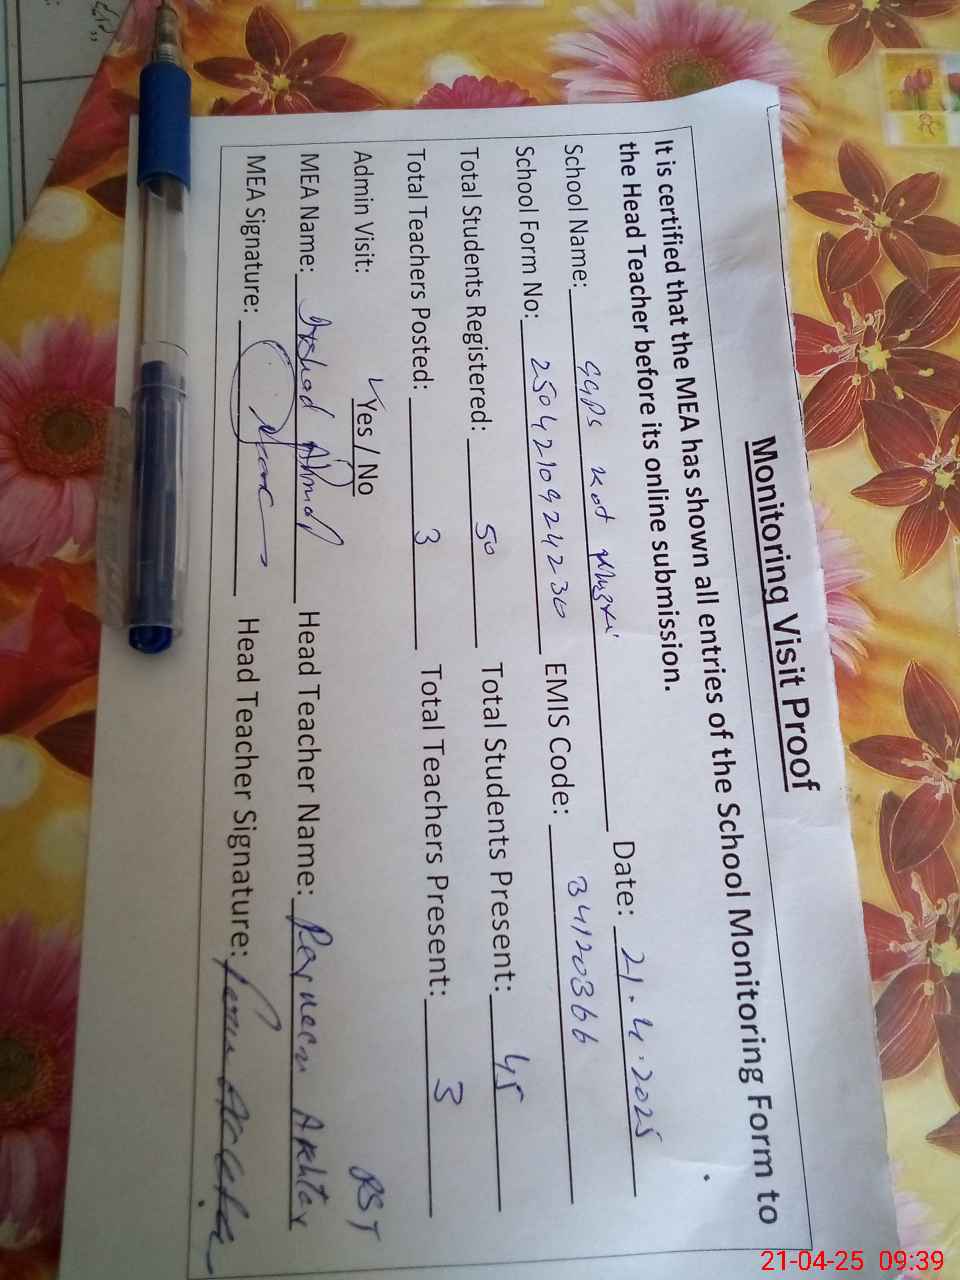 Monitoring Visit Proof
It is certified that the MEA has shown all entries of the School Monitoring Form to
the Head Teacher before its online submission.
School Name: GGPS Kot Date: 21.4.2025
School Form No: 2504210924230 EMIS Code: 34120366
Total Students Registered: 50 Total Students Present: 45
Total Teachers Posted: 3 Total Teachers Present: 3
Admin Visit: Yes / No PST
MEA Name: Irshad Ahmad Head Teacher Name: Parveen Akhter
MEA Signature: Head Teacher Signature:
21-04-25 09:39